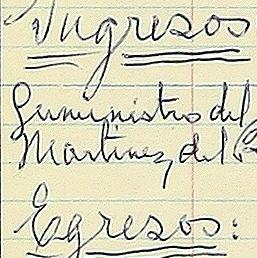 Ingresos
Suministro del
Martinez, del
Egresos: